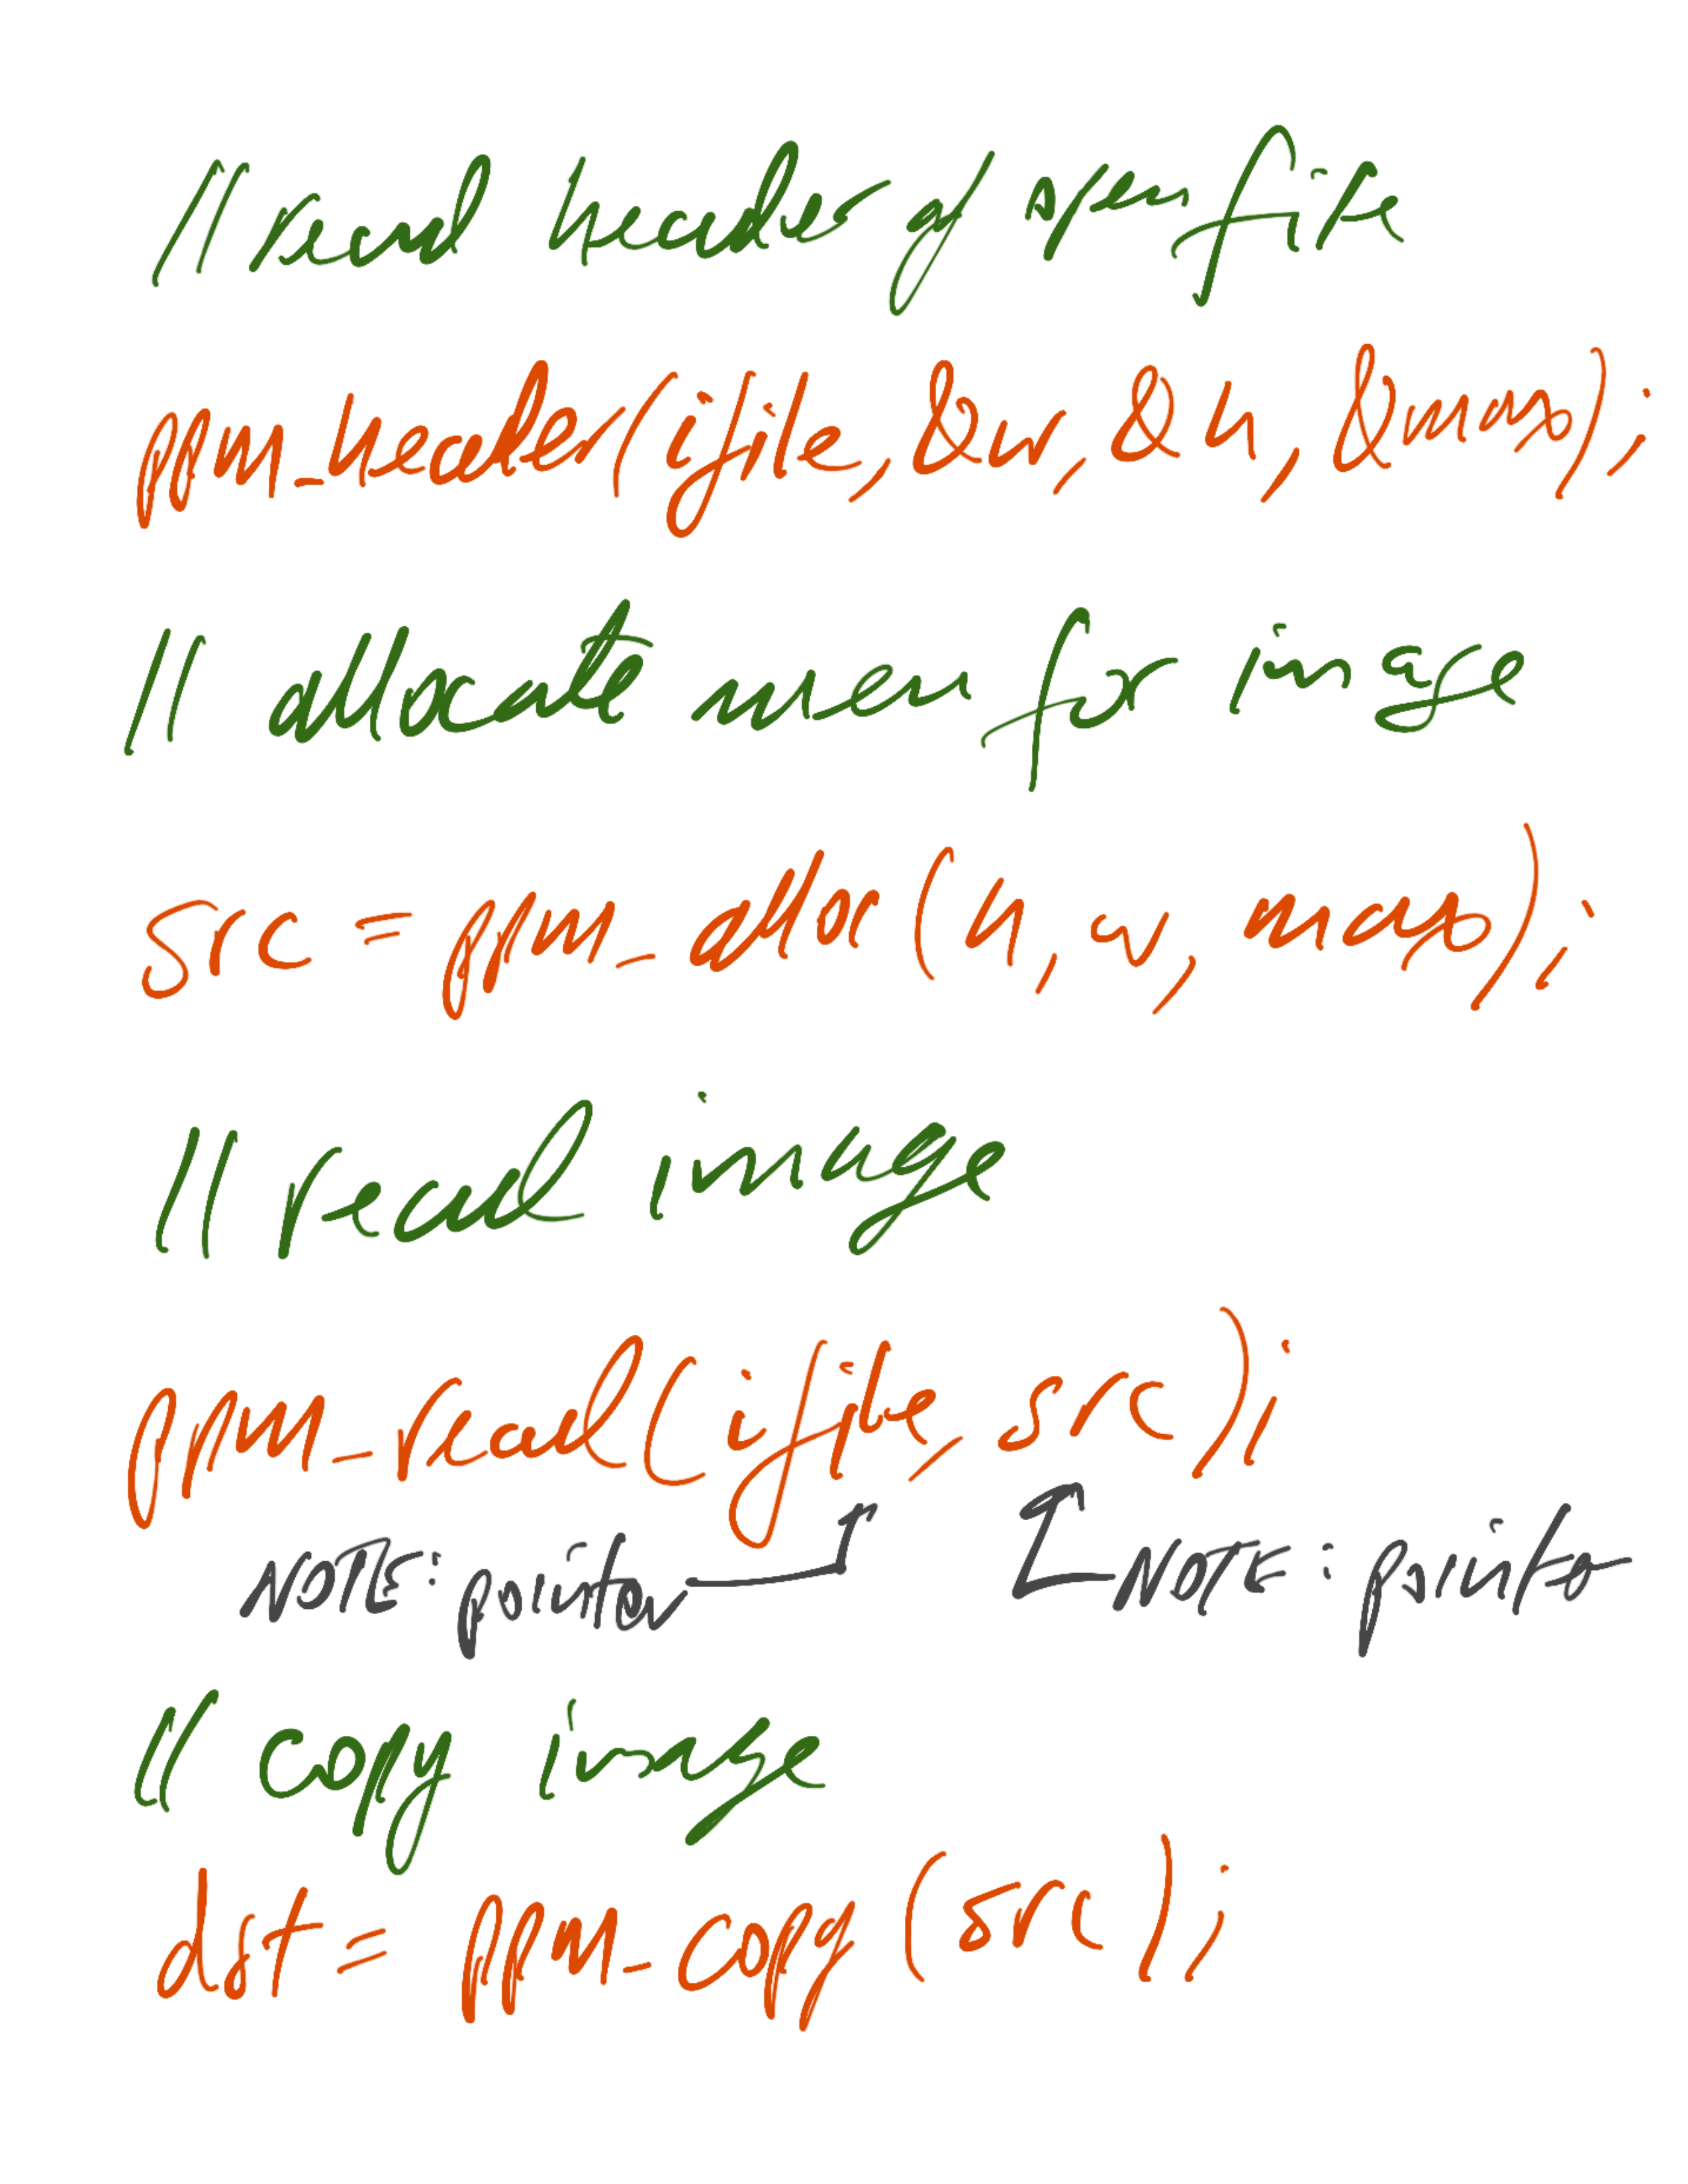 // read header of open file
ppm_header(ifile, &w, &h, &map);
// allocate mem for image
src = ppm_alloc(h, w, map);
// read image
ppm_read(ifile, src);
NOTE: pointer NOTE: pointer
// copy image
dst = ppm_copy(src);